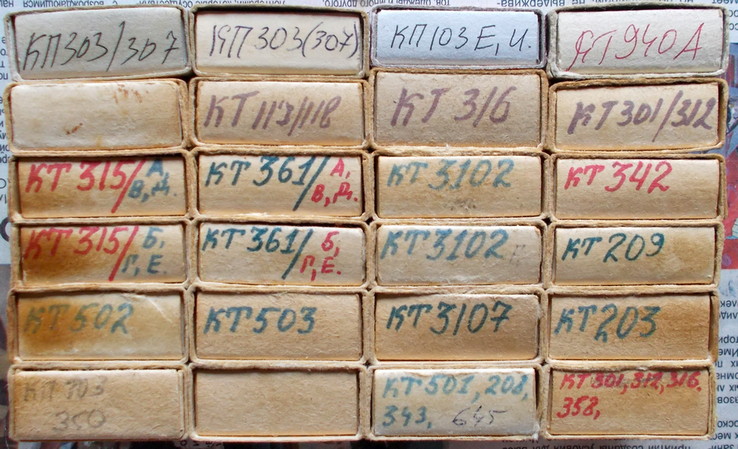 КП303/307
КП303(307)
КП103Е, И.
КТ940А
КТ117/118
КТ316
КТ301/312
КТ315/А,
В,Д.
КТ361/А,
В,Д.
КТ3102
КТ342
КТ315/Б,
Г,Е.
КТ361/Б,
Г,Е.
КТ3102
КТ209
КТ502
КТ503
КТ3107
КТ203
КП303
350
КТ501,208,
343, 645
КТ301,312,316,
358,